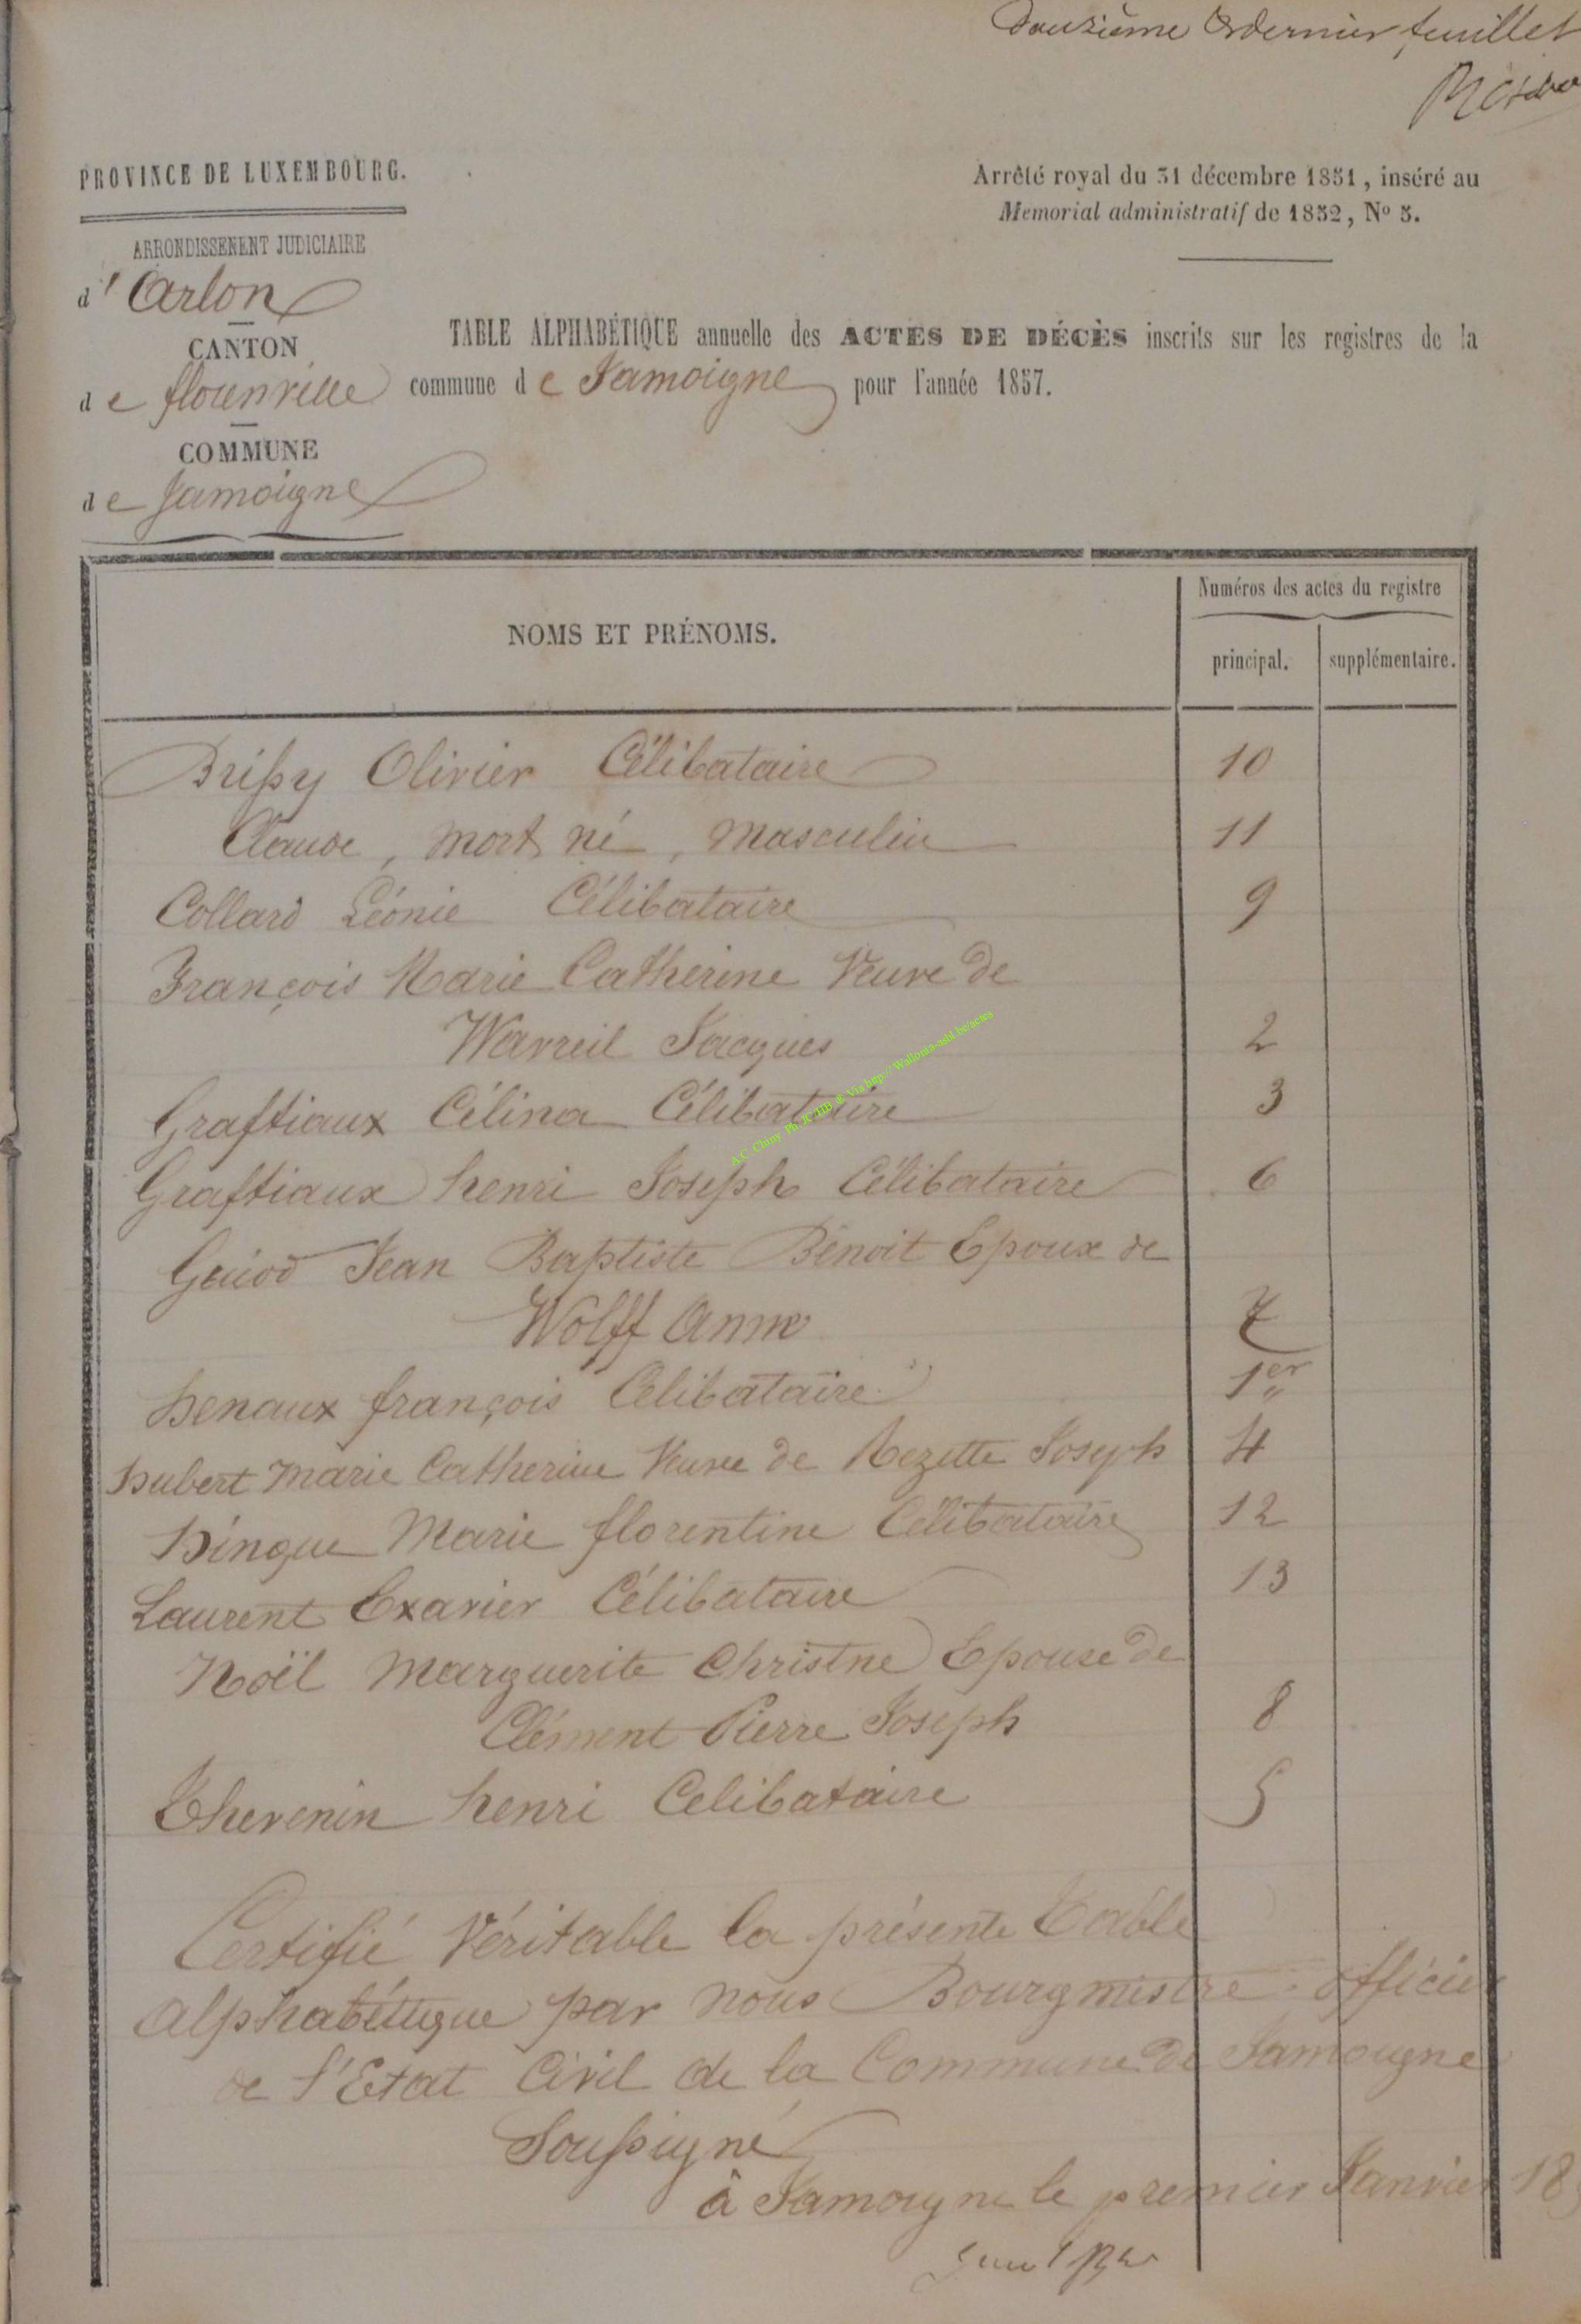 Douzième & dernier feuillet
PROVINCE DE LUXEMBOURG.
Arrêté royal du 31 décembre 1851, inséré au
Memorial administratif de 1852, Nº 5.
ARRONDISSEMENT JUDICIAIRE
d'Arlon
CANTON
de florenville
COMMUNE
de Jamoigne
TABLE ALPHABÉTIQUE annuelle des ACTES DE DÉCÈS inscrits sur les registres de la
commune de Jamoigne pour l'année 1857.
NOMS ET PRÉNOMS.
Numéros des actes du registre
principal. supplémentaire.
Brissy Olivier Célibataire 10
Claude, mort né, masculin 11
Collard Léonie Célibataire 9
François Marie Catherine Veuve de
Warreil Jacques 2
Graftiaux Célina Célibataire 3
Graftiaux henri Joseph Célibataire 6
Jean Baptiste Bénoit Epoux de
Wolff Anne 7
henaux françois Célibataire 1er
hubert Marie Catherine Veuve de Rezette Joseph 4
hinque Marie florentine Célibataire 12
Laurent Exavier Célibataire 13
Noël Marguerite Christne Epouse de
Clément Pierre Joseph 8
Thevenin henri Celibataire 5
Certifié Véritable la présente Table
Alphabétique par nous Bourgmestre officier
de l'Etat Civil de la Commune de Jamoigne
Soussigné
à Jamoigne le premier Janvier 18
A.C Chiny Ph JC.HB & Via http://Wallonia-asbl.be/actes